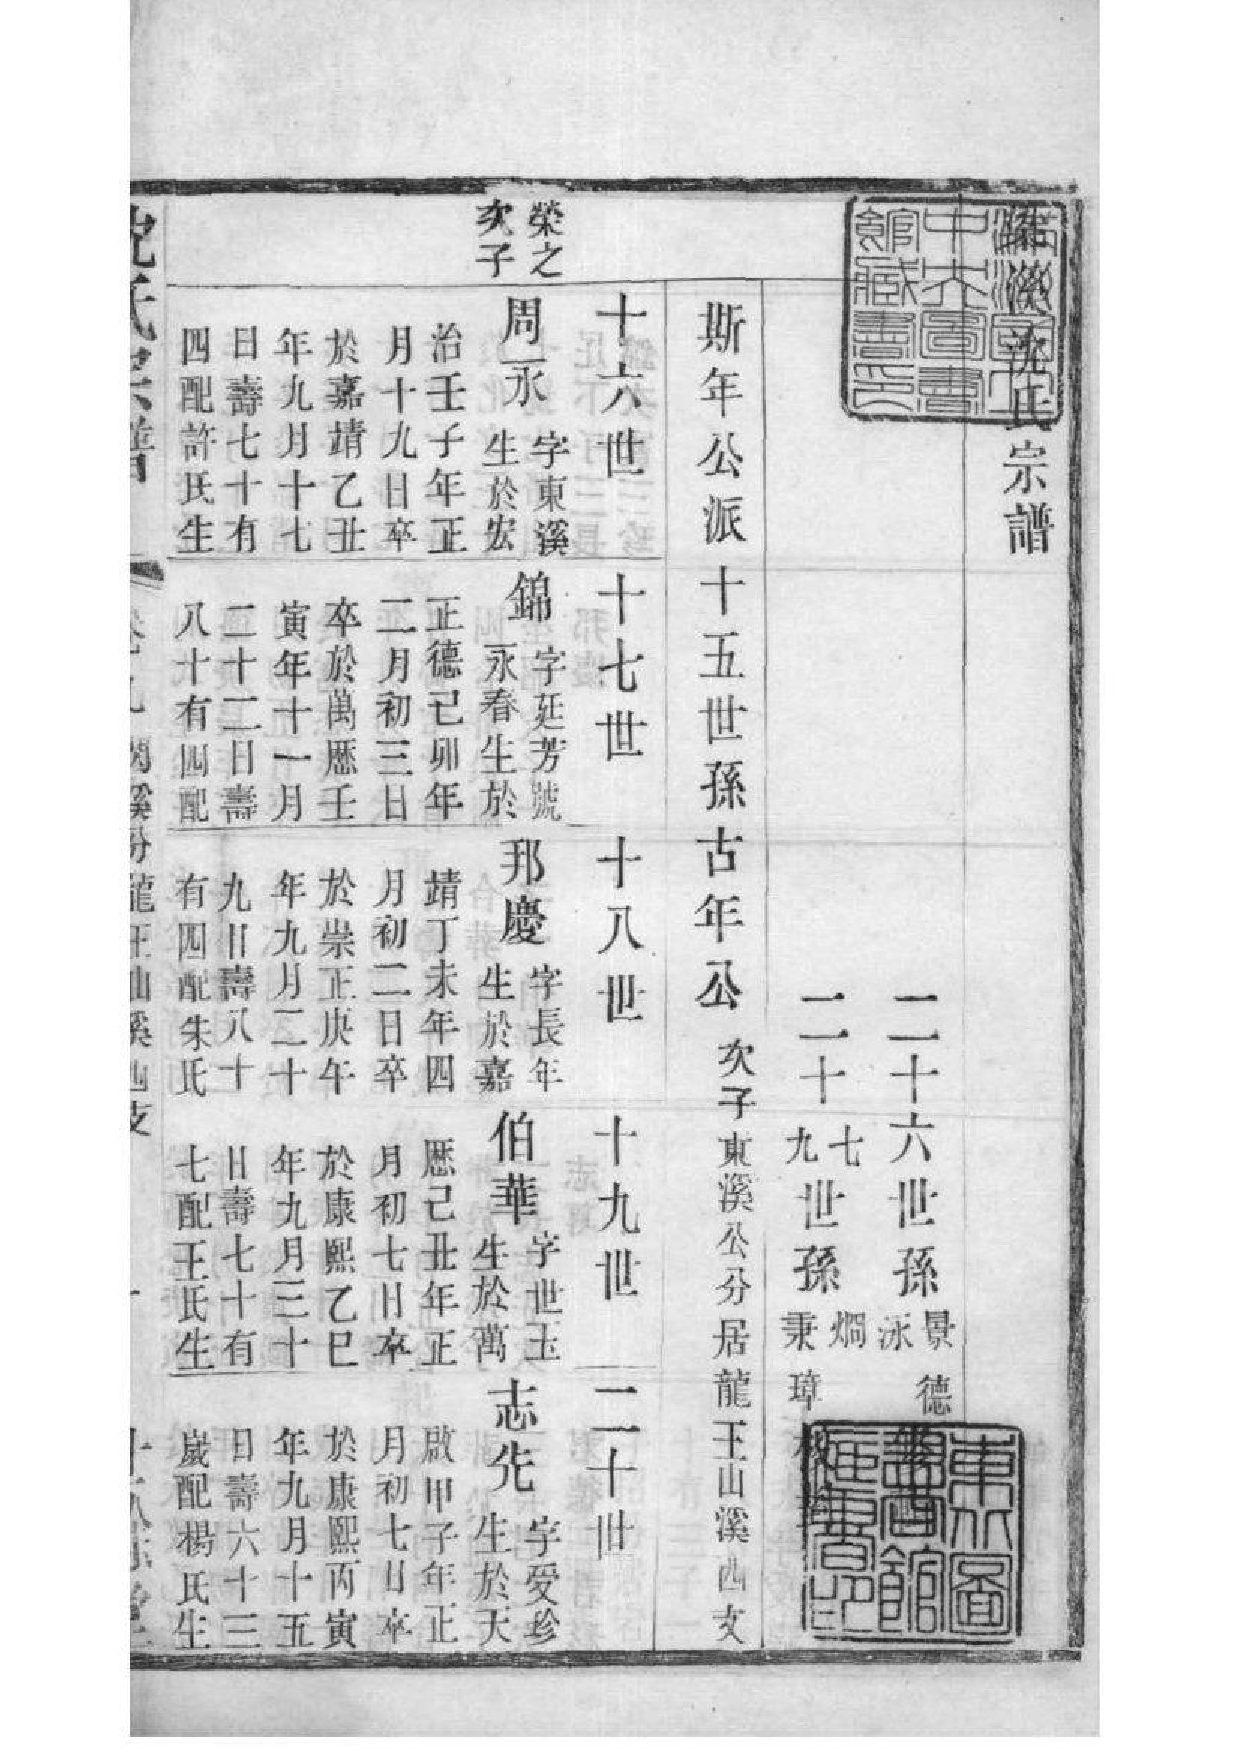 沈氏宗譜
二十六世孫 景德 泳
二十七世孫 烱
二十九世孫 秉璋
斯年公派十五世孫古年公 次子東溪公分居龍王山溪西支
十六世
十七世
十八世
十九世
二十世
榮之
次子
周永 字東溪
生於宏
治壬子年正
月十九日卒
於嘉靖乙丑
年九月十七
日壽七十有
四配許氏生
錦 字延芳號
永春生於
正德己卯年
二月初三日
卒於萬歷壬
寅年十一月
二十二日壽
八十有四配
邦慶 字長年
生於嘉
靖丁未年四
月初二日卒
於崇正庚午
年九月二十
九日壽八十
有四配朱氏
伯華 字世玉
生於萬
歷己丑年正
月初七日卒
於康熙乙巳
年九月三十
日壽七十有
七配王氏生
志先 字受珍
生於天
啟甲子年正
月初七日卒
於康熙丙寅
年九月十五
日壽六十三
歲配楊氏生